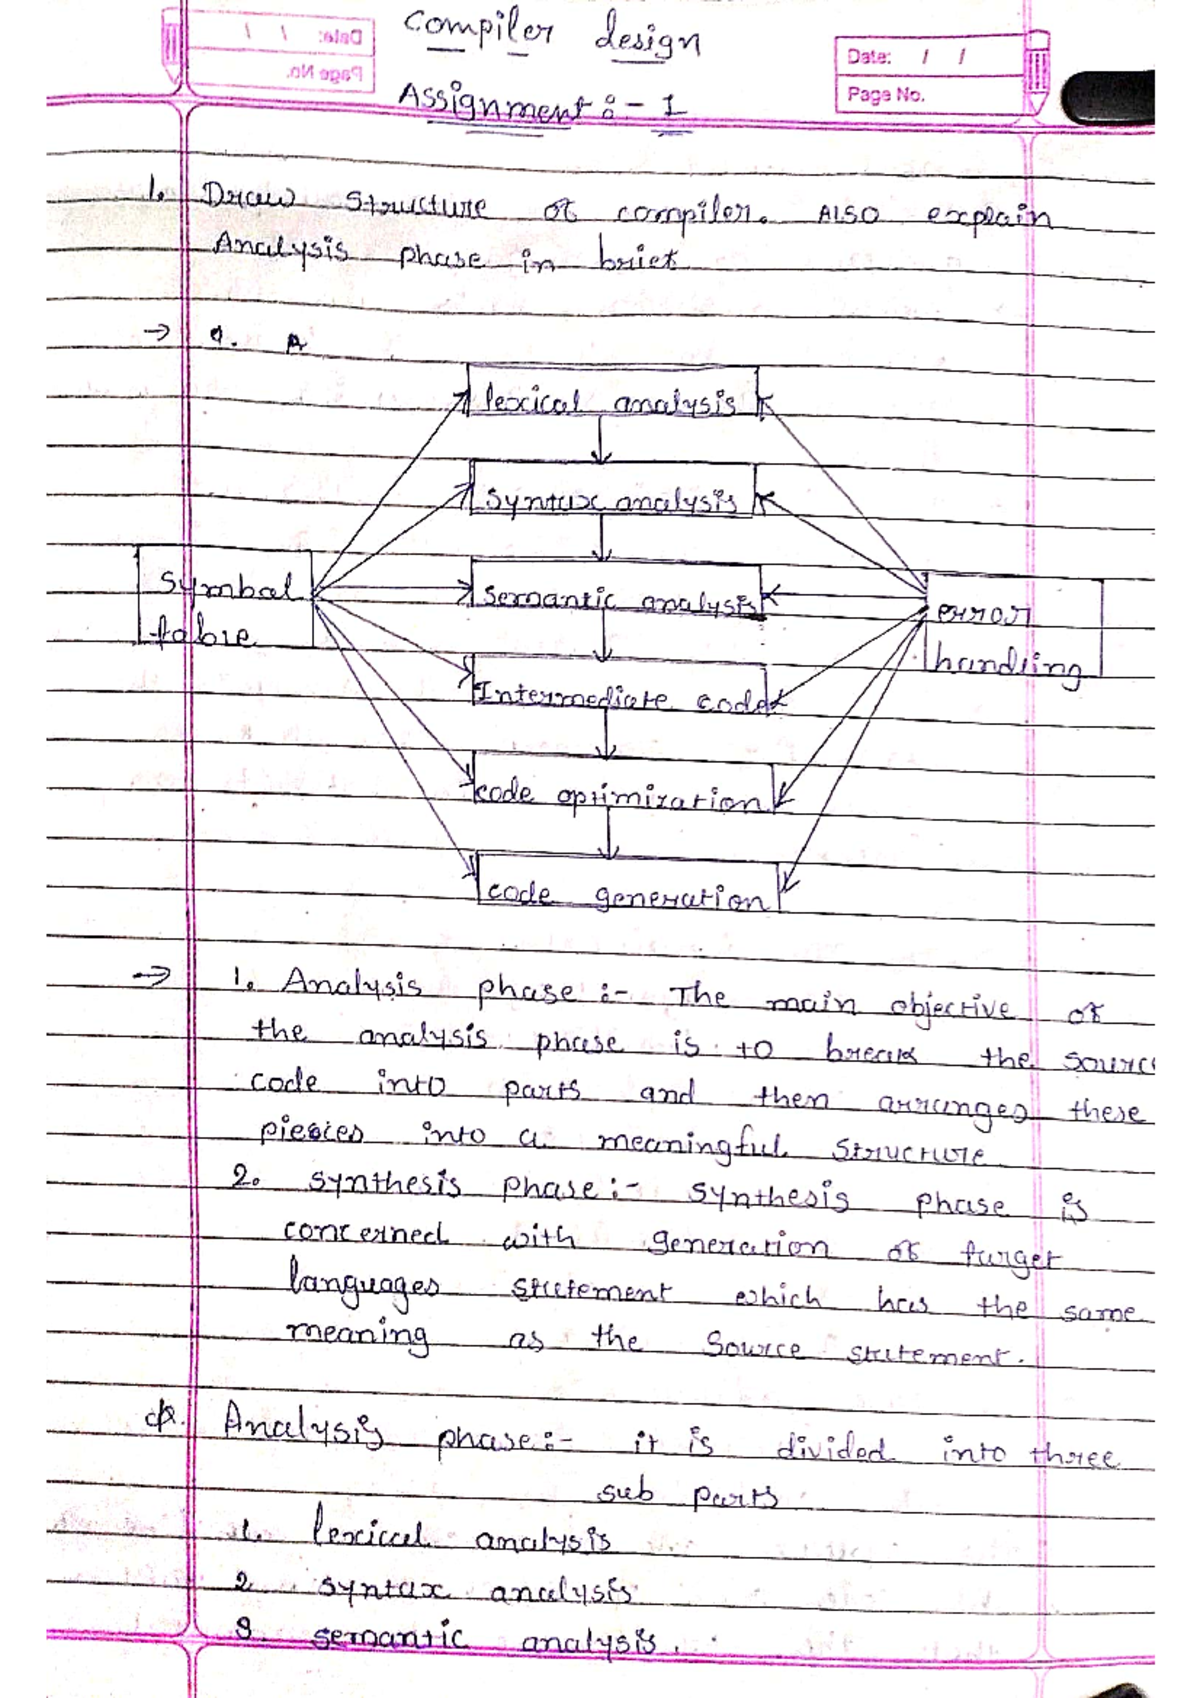 Compiler design
Date: / /
Page No.
Date: / /
Page No.
Assignment :- 1
1. Draw structure of compiler. Also explain
Analysis phase in brief
→ A
lexical analysis
syntax analysis
symbal
table
semantic analysis
error
handling
Intermediate code
code optimization
code generation
→ 1. Analysis phase :- The main objective of
the analysis phase is to break the sourc
code into parts and then arranges these
piecies into a meaningful structure
2. synthesis phase :- synthesis phase is
concerned with generation of target
languages statement which has the same
meaning as the source statement.
Analysis phase :- it is divided into three
sub parts
1. lexical analysis
2. syntax analysis
3. semantic analysis.